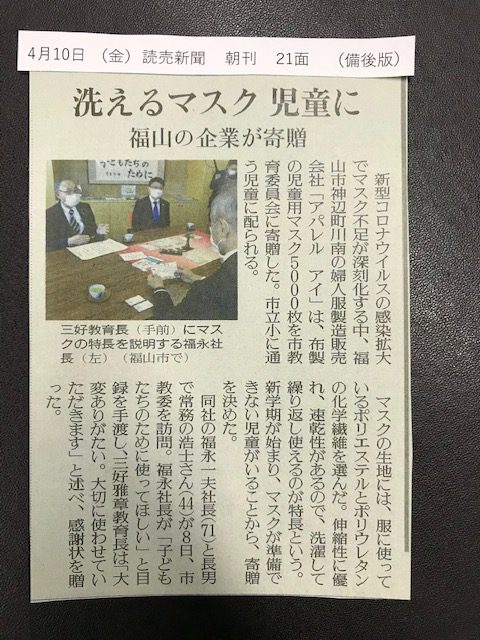 4月10日 (金) 読売新聞 朝刊 21面 (備後版)
洗えるマスク 児童に
福山の企業が寄贈
子どもたちの
ために
三好教育長(手前)にマス
クの特長を説明する福永社
長(左)(福山市で)
新型コロナウイルスの感染拡大
でマスク不足が深刻化する中、福
山市神辺町川南の婦人服製造販売
会社「アパレル アイ」は、布製
の児童用マスク5000枚を市教
育委員会に寄贈した。市立小に通
う児童に配られる。
マスクの生地には、服に使って
いるポリエステルとポリウレタン
の化学繊維を選んだ。伸縮性に優
れ、速乾性があるので、洗濯して
繰り返し使えるのが特長という。
新学期が始まり、マスクが準備で
きない児童がいることから、寄贈
を決めた。
同社の福永一夫社長(71)と長男
で常務の浩士さん(44)が8日、市
教委を訪問。福永社長が「子ども
たちのために使ってほしい」と目
録を手渡し、三好雅章教育長は「大
変ありがたい。大切に使わせてい
ただきます」と述べ、感謝状を贈
った。